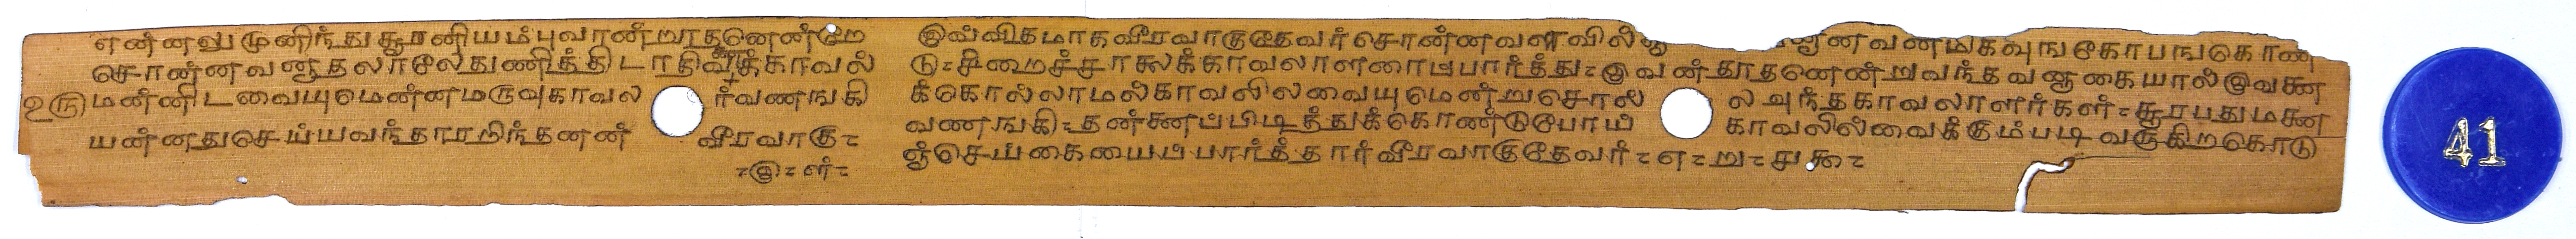 என்னலு முனிந்துசூரனியம்புவான்றூதனென்றே இவ்விதமாகவீரவாகுதேவர்சொன்னவளவில் னவனமிகவுங்கோபங்கொண்
சொன்னவனுதலாலேதுணித்திடாதிவனைக்காவல் டு-சிறைச்சாலைக்காவலாளரைப்பார்த்து-இவன்தூதனென்றுவந்தவனுகையால்இவனை
உரு மன்னிடவையுமென்னமருவுகாவல ர்வணங்கி க்கொல்லாமல்காவலிலவையுமென்றுசொல ல அந்தகாவலாளர்கள்-சூரபதுமனை
யன்னதுசெய்யவந்தாரறிந்தனன் வீரவாகு- வணங்கி-தன்னைப்பிடித்துக்கொண்டுபோய் காவலில்வைக்கும்படி வருகிறகொடு
-இ-ள்- ஞ்செய்கையைப்பார்த்தார்வீரவாகுதேவர்-எ-று-
41